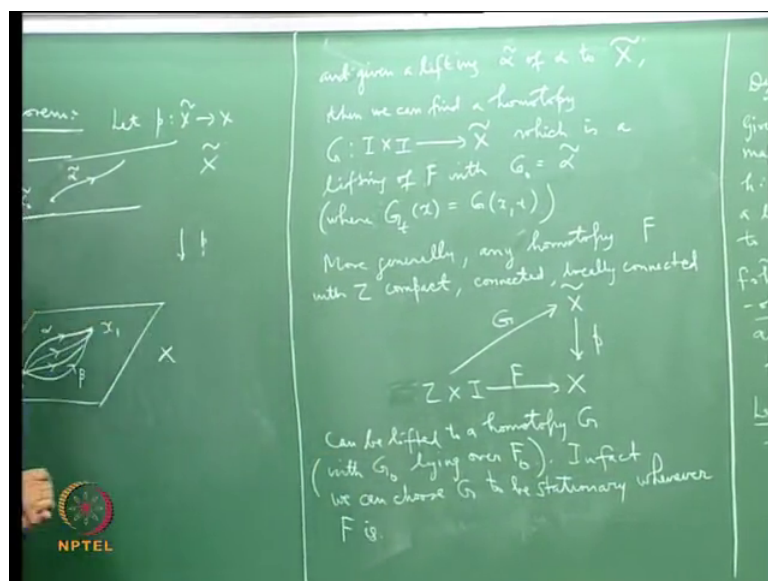 orem: Let p: X̃ → X
α̃
X̃
↓ p
α
x₁
β
X
and given a lifting α̃ of α to X̃,
then we can find a homotopy
G: I × I → X̃ which is a
lifting of F with G₀ = α̃
(where G_t(x) = G(x, t))
More generally, any homotopy F
with Z compact, connected, locally connected
X̃
G
↓ p
Z × I F→ X
Can be lifted to a homotopy G
(with G₀ lying over F₀). Infact
we can choose G to be stationary wherever
F is.
Give
ma
h:
a l
to
a
NPTEL